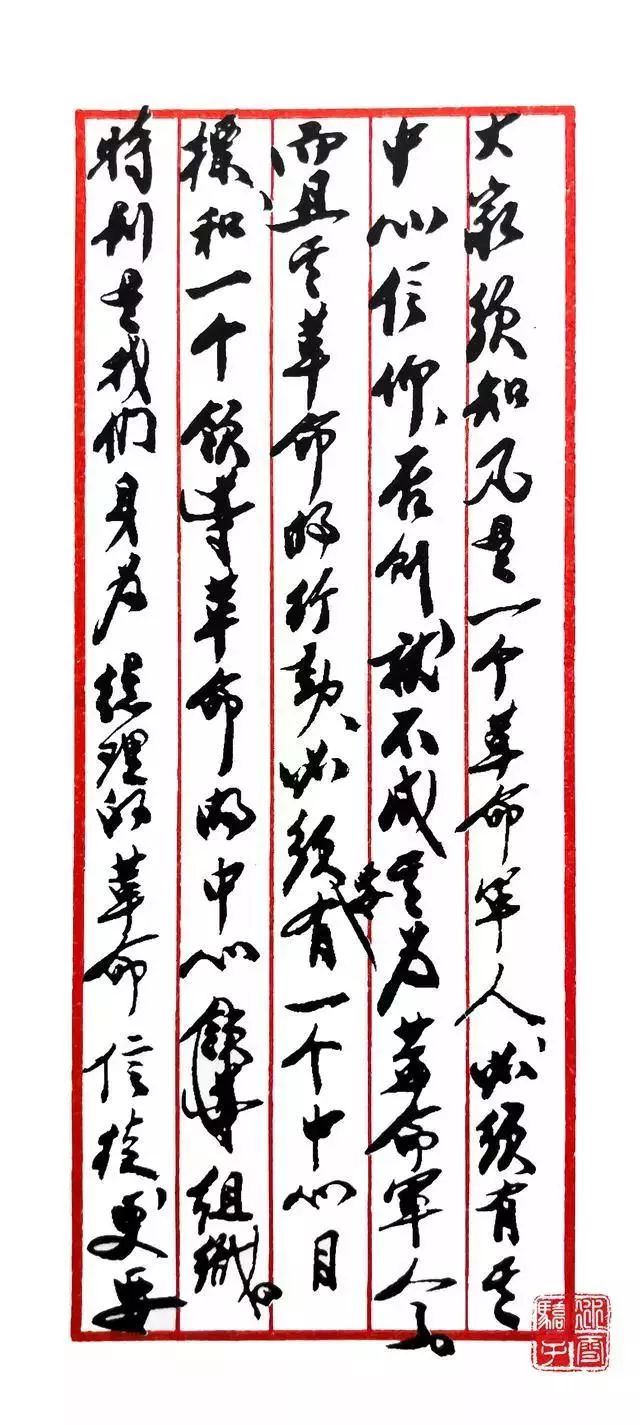 大家须知凡是一个革命军人、必须有其
中心信仰、否则就不成其为革命军人
而且其革命的行动、必须有一个中心目
標、和一个领导革命的中心领导组织
特别是我们身为总理的革命信徒、更要